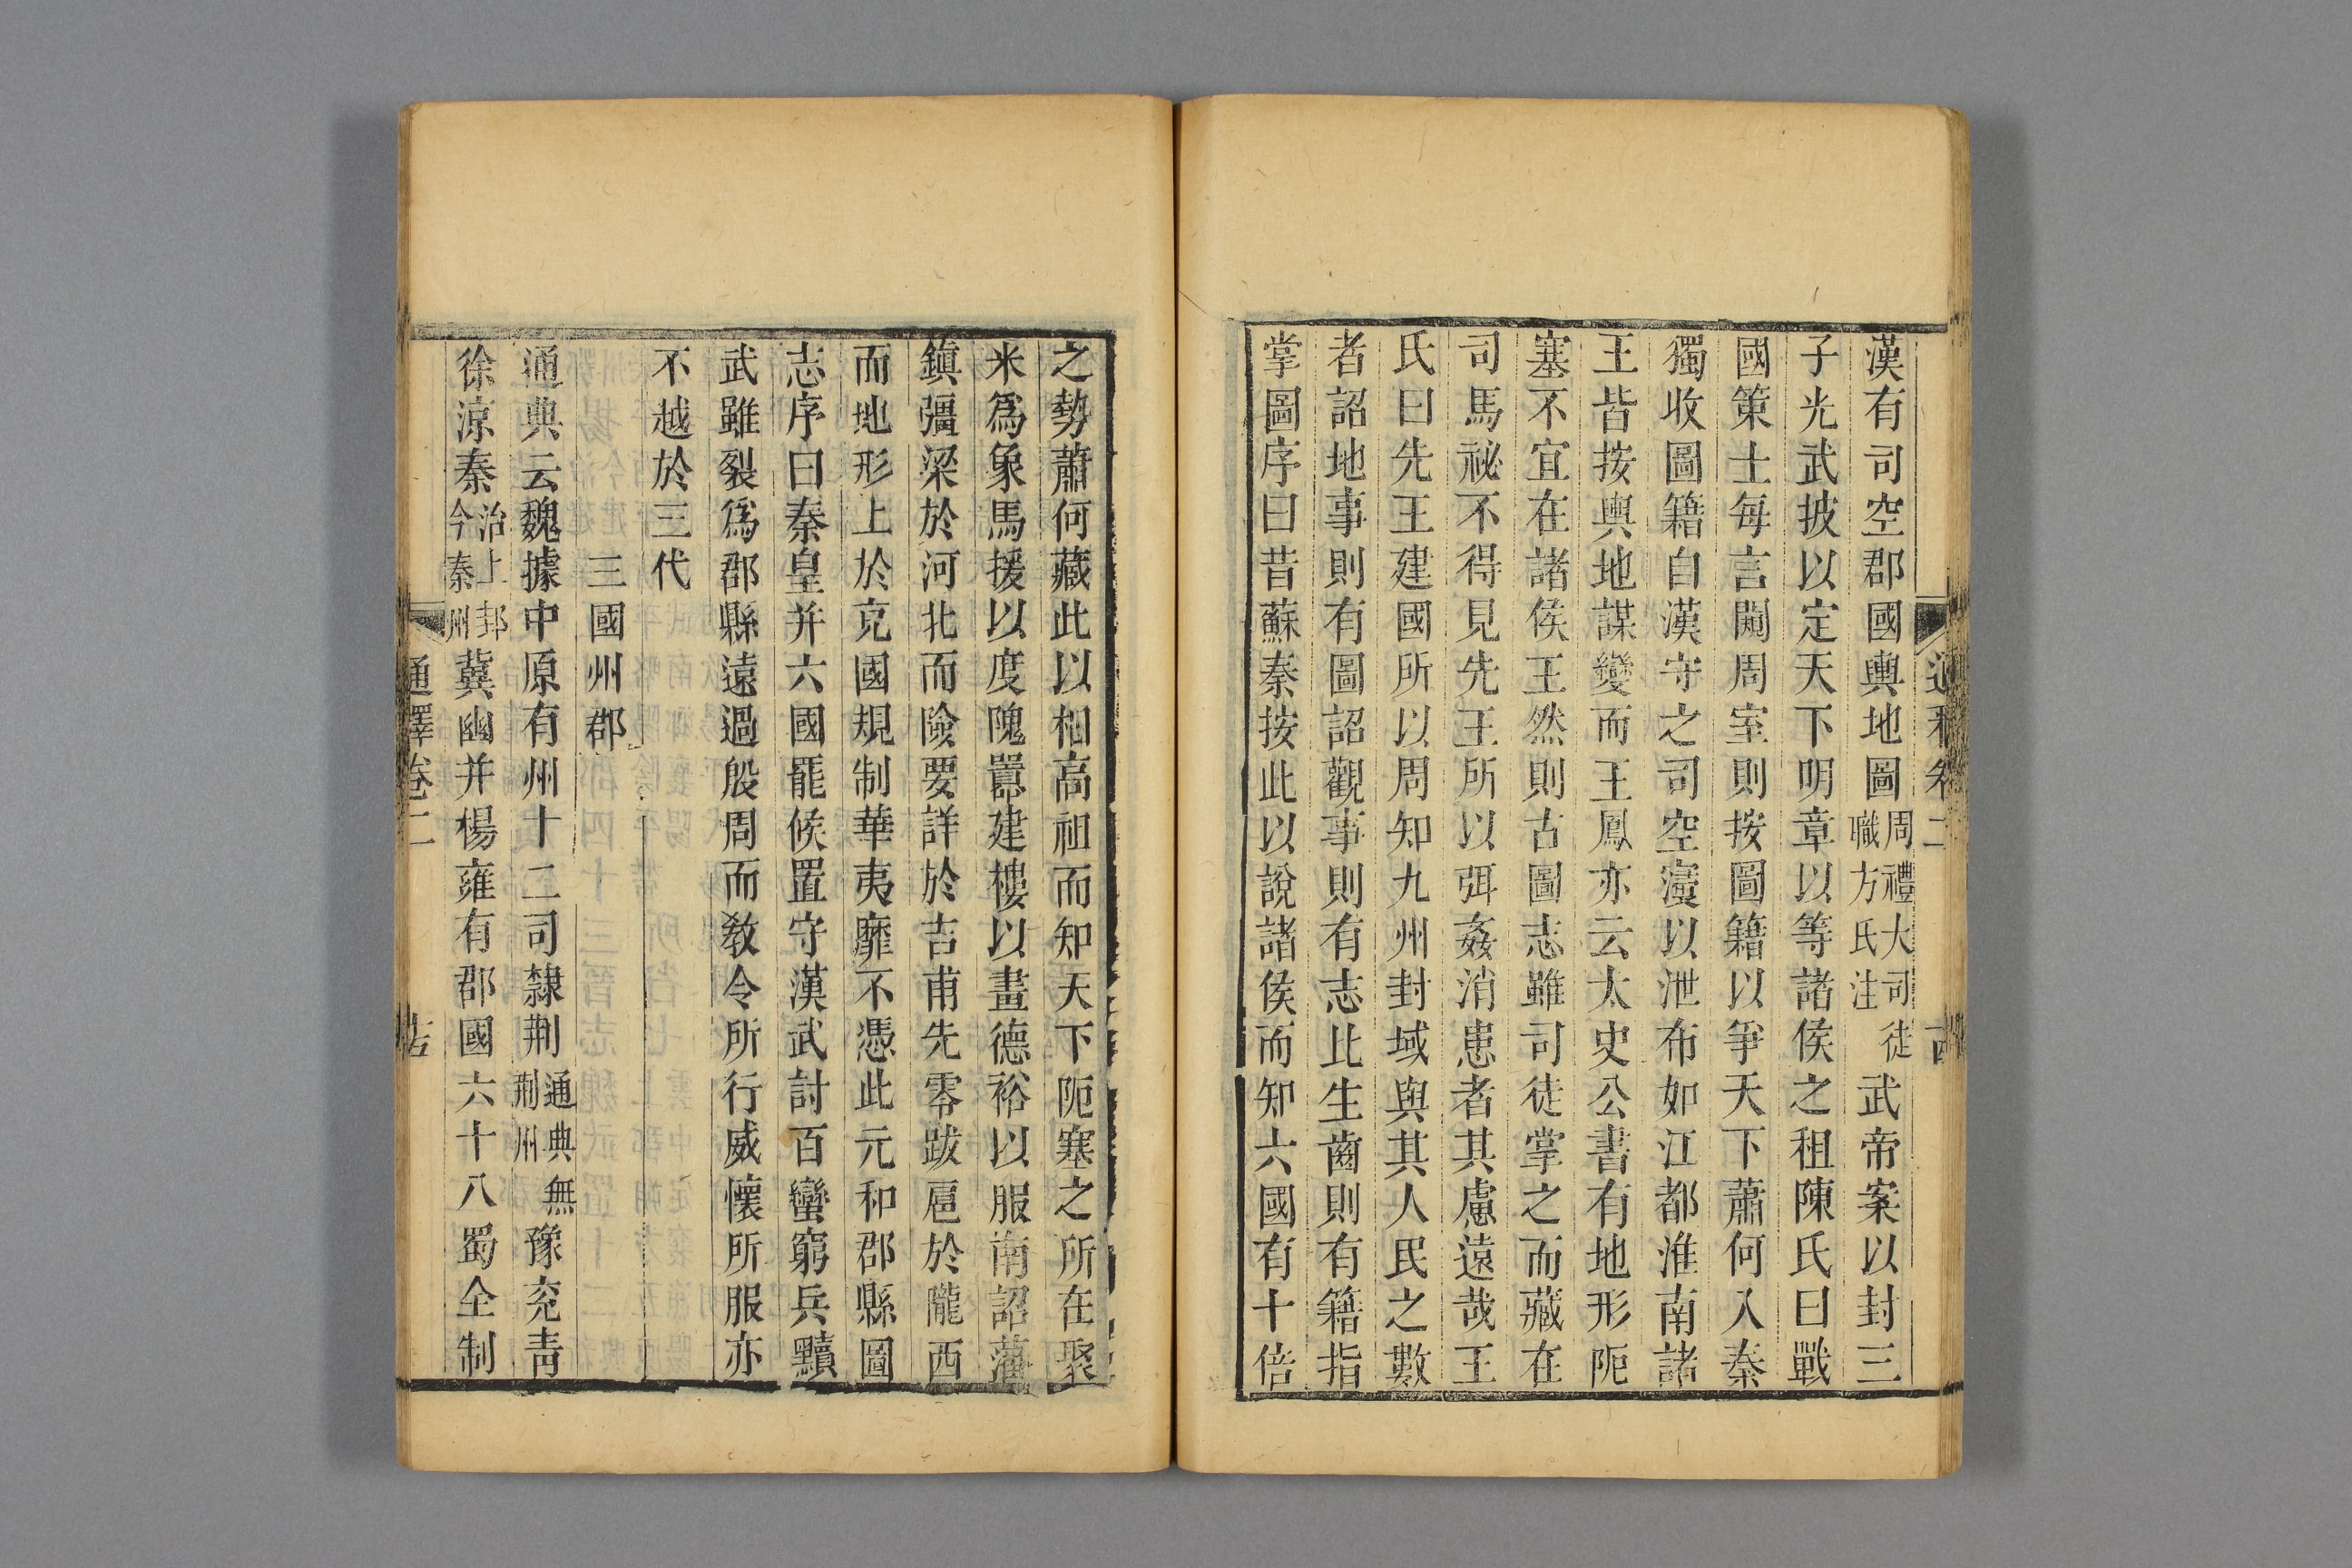 漢有司空郡國輿地圖周禮大司徒職方氏注武帝案以封三
子光武披以定天下明章以等諸侯之祖陳氏曰戰
國策士每言闚周室則按圖籍以爭天下蕭何入秦
獨收圖籍自漢守之司空寖以泄布如江都淮南諸
王皆按輿地謀變而王鳳亦云太史公書有地形阨
塞不宜在諸侯王然則古圖志雖司徒掌之而藏在
司馬祕不得見先王所以弭姦消患者其慮遠哉王
氏曰先王建國所以周知九州封域與其人民之數
者詔地事則有圖詔觀事則有志比生齒則有籍指
掌圖序曰昔蘇秦按此以說諸侯而知六國有十倍
之勢蕭何藏此以相高祖而知天下阨塞之所在聚
米爲象馬援以度隗囂建樓以畫德裕以服南詔藩
鎮彊梁於河北而險要詳於吉甫先零跋扈於隴西
而地形上於充國規制華夷靡不憑此元和郡縣圖
志序曰秦皇并六國罷候置守漢武討百蠻窮兵黷
武雖裂爲郡縣遠過殷周而敎令所行威懷所服亦
不越於三代
三國州郡
通典云魏據中原有州十二司隸荆通典無荆州豫兖靑
徐涼秦治上邽今秦州冀幽并楊雍有郡國六十八蜀全制
通釋卷二